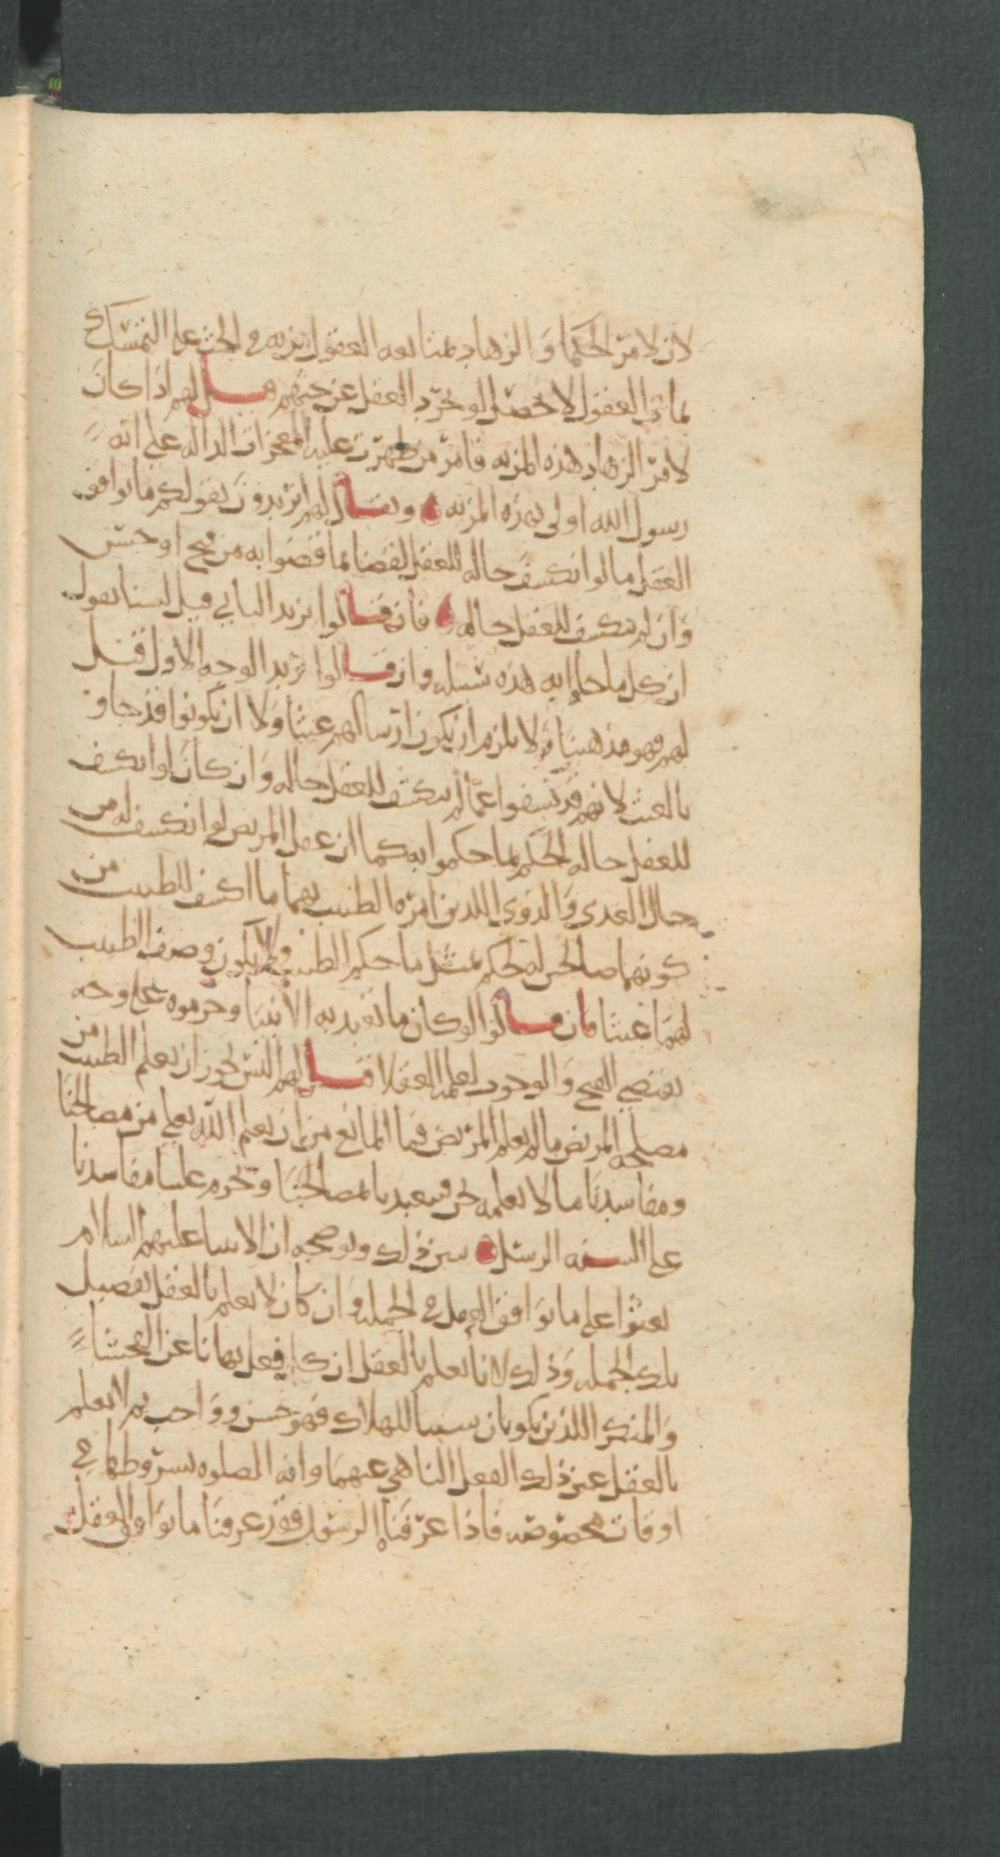 لان لامر الحكما و الزهاد بمتابعه العقول مزيه في الحث على التمسك
بما في العقول لا تحصل لو تجرد العقل عن حثهم قيل لهم اذا كان
لامر الزهاد هذه المزيه فامر من ظهرت عليه المعجزات الداله على انه
رسول الله اولى بهذه المزيه ويقال لهم اتريدون بقولكم ما يوافق
العقل ما لو انكشف حاله للعقل لقضا بما قضوا به من قبح او حسن
وان لم ينكشف للعقل حاله فان قالوا نريد الثاني قيل لسنا نقول
ان كل ما جاءوا به هذه سبيله وان قالوا نريد الوجه الاول قيل
لهم فهو مذهبنا ولا يلزم ان يكون ارسالهم عبثا ولا ان يكونوا قد جاو
بالعبث لانهم قد كشفوا عما لم ينكشف للعقل حاله وان كان لو انكشف
للعقل حاله لحكم بما حكموا به كما ان عقل المريض لو انكشف له من
حال الغذي والدوي اللذين امره الطبيب بهما ما انكشف للطبيب من
كونهما صالحين له لحكم بمثل ما حكم الطبيب ولا يكون وصف الطبيب
لهما عبثا فان قالوا لو كان ما تعبد به الانبيا وحرموه على وجه
يقتضي القبح والوجوب لعلمه العقلا قيل لهم اليس يجوز ان يعلم الطبيب من
مصلحه المريض ما لم يعلم المريض فما المانع من ان يعلم الله تعلى من مصالحنا
ومفاسدنا ما لا نعلمه نحن فيتعبدنا بمصالحنا ويحرم علينا مفاسدنا
على السنه الرسل يبين ذلك ويوضحه ان الانبيا عليهم السلام
بعثوا على ما يوافق العقل في الجمله وان كان لا يعلم بالعقل تفصيل
تلك الجمله وذلك لانا نعلم بالعقل ان كل فعل نهانا عن الفحشاء
والمنكر اللذين يكونان سببا للهلاك فهو حسن وواجب ثم لا نعلم
بالعقل عين ذلك الفعل الناهي عنهما وانه الصلوه بشروطها في
اوقات مخصوصه فاذا عرفناه الرسول فقد عرفنا ما يوافق العقل